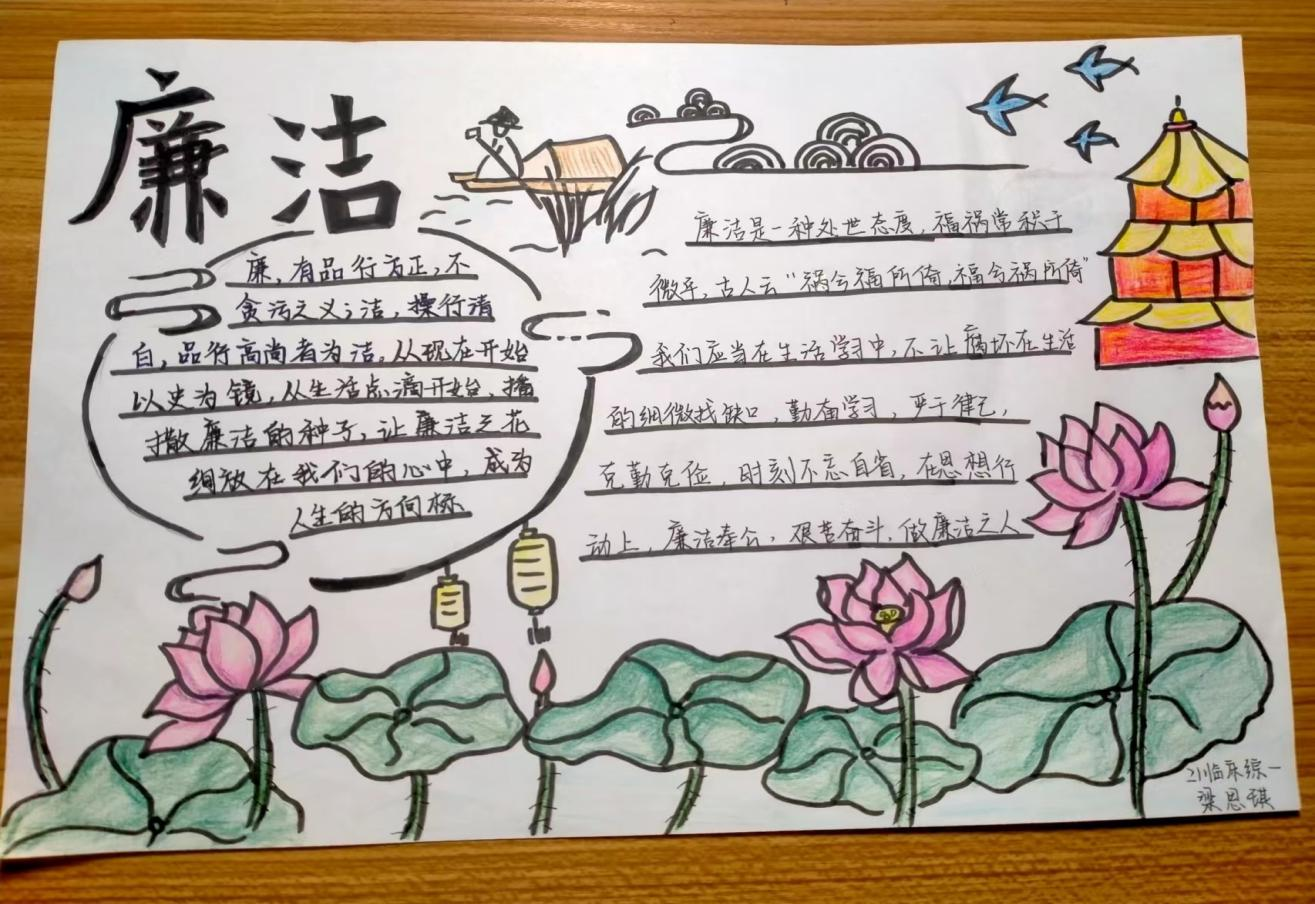 廉洁
廉，有品行为正，不
贪污之义；洁，操行清
白，品行高尚者为洁。从现在开始
以史为镜，从生活点滴开始，播
撒廉洁的种子，让廉洁之花
绸放在我们的心中，成为
人生的方向标
廉洁是一种处世态度，福祸常积于
微乎，古人云“祸兮福所倚，福兮祸所倚”
我们应当在生活学习中，不让腐坏在生活
的细微找缺口，勤奋学习，严于律己，
克勤克俭，时刻不忘自省，在思想行
动上，廉洁奉公，艰苦奋斗，做廉洁之人
21临床综一
梁思琪